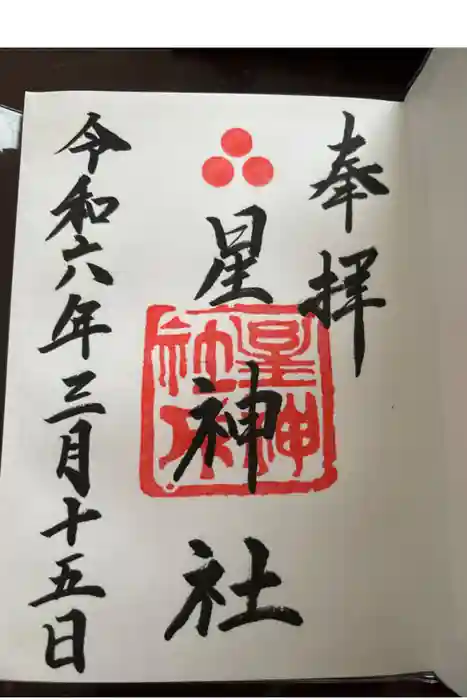 奉拝
星神社
星神社印
令和六年三月十五日